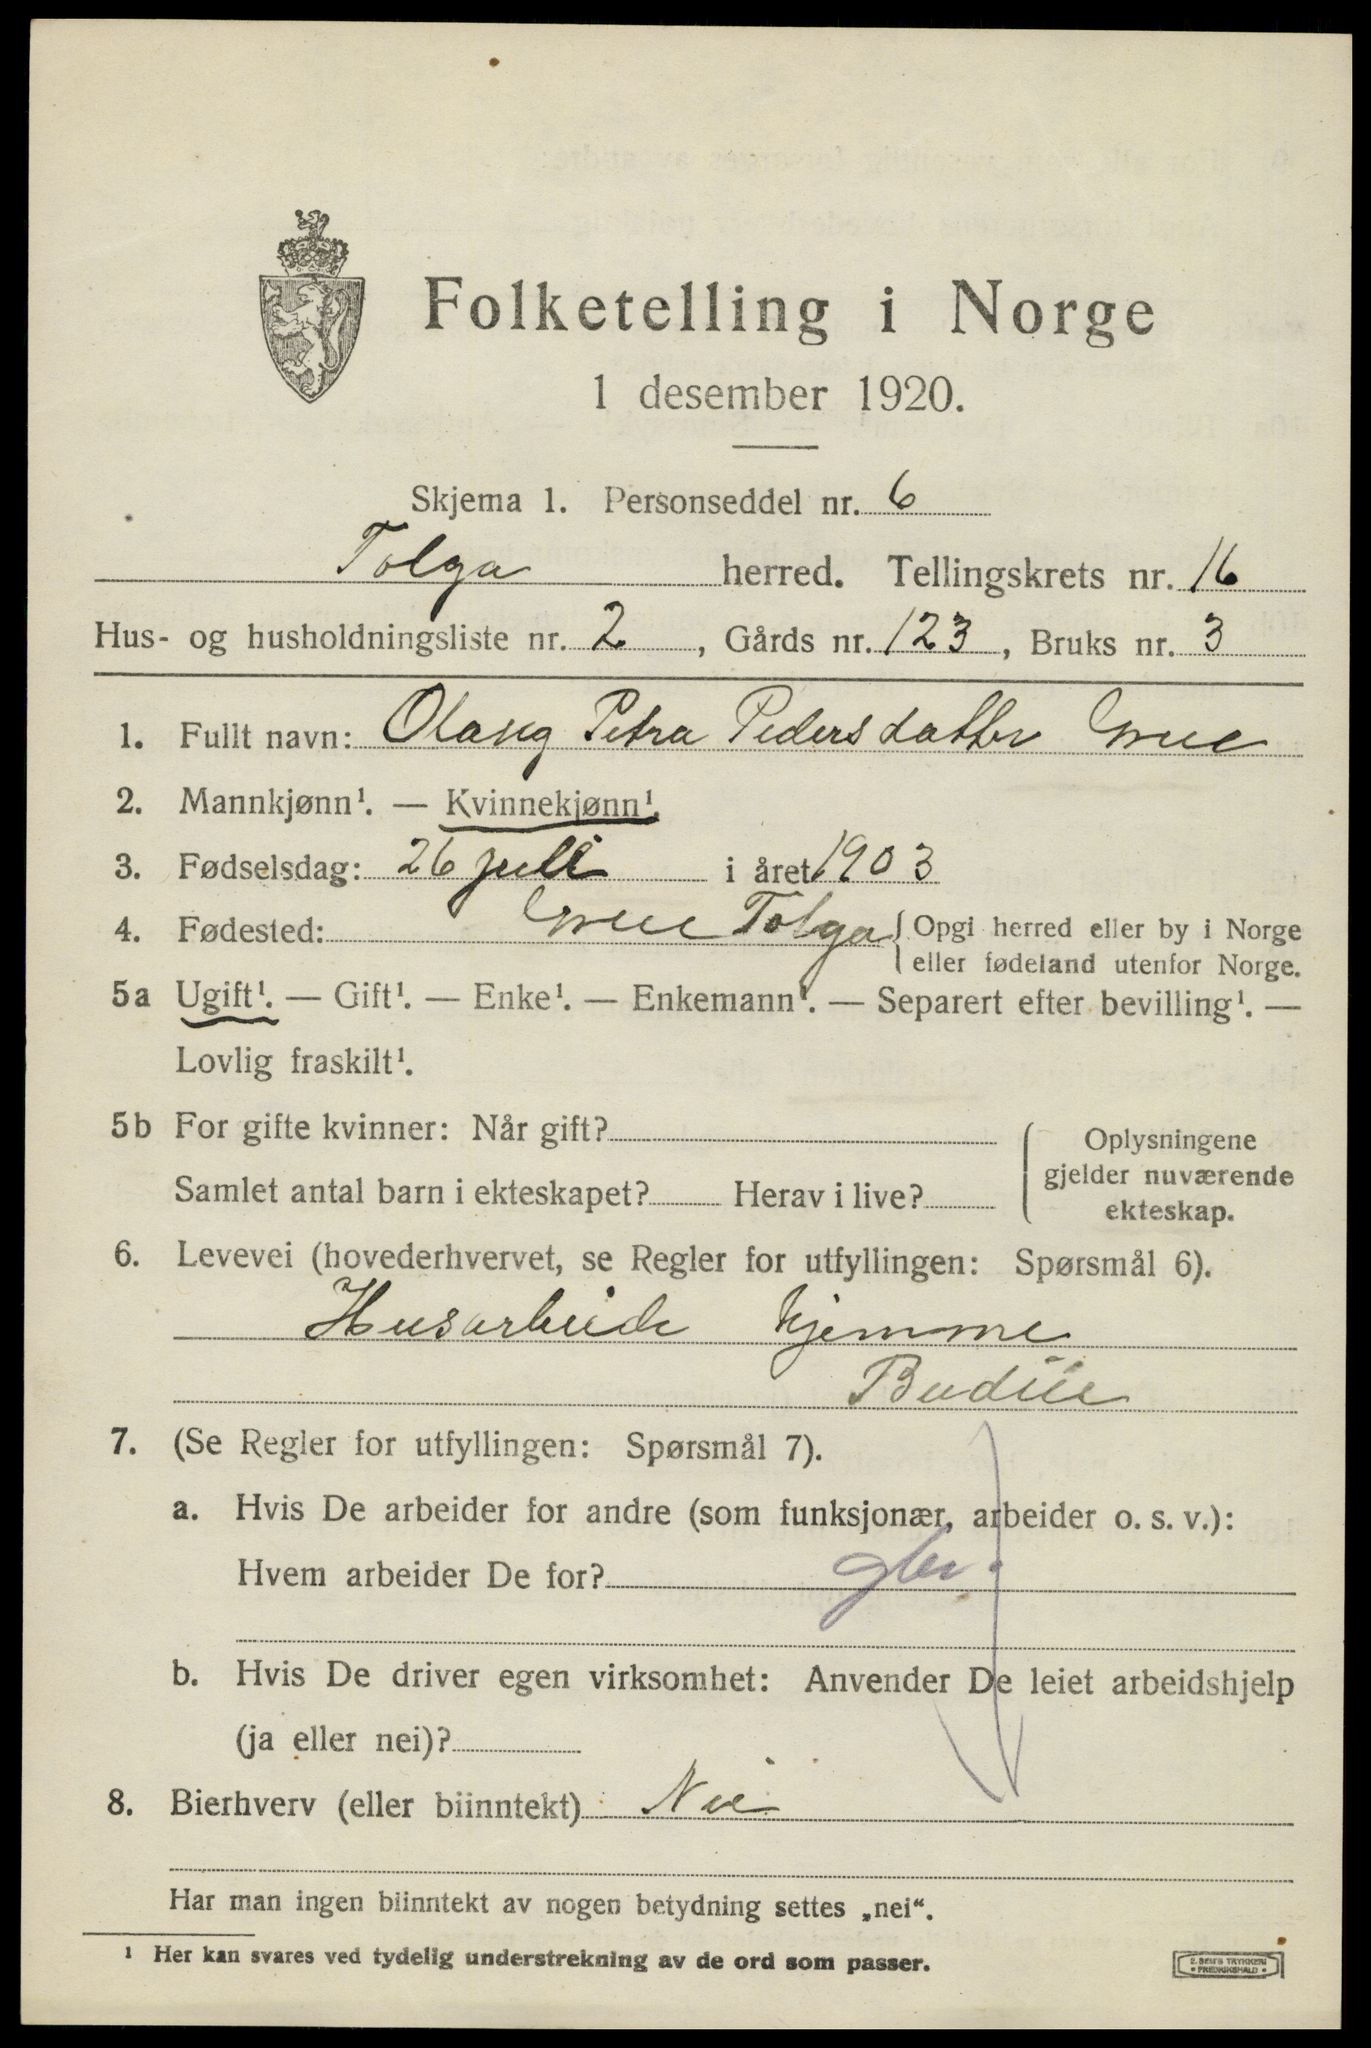 Folketelling i Norge
1 desember 1920.
Skjema 1. Personseddel nr. 6
Tolga herred. Tellingskrets nr. 16
Hus- og husholdningsliste nr. 2, Gårds nr. 123, Bruks nr. 3
1. Fullt navn: Olaug Petra Pedersdatter Grue
2. Mannkjønn¹. — Kvinnekjønn¹.
3. Fødselsdag: 26 juli i året 1903
4. Fødested: Grue Tolga { Opgi herred eller by i Norge
eller fødeland utenfor Norge.
5a Ugift¹. — Gift¹. — Enke¹. — Enkemann¹. — Separert efter bevilling¹. —
Lovlig fraskilt¹.
5b For gifte kvinner: Når gift?
Samlet antal barn i ekteskapet? Herav i live?
{ Oplysningene
gjelder nuværende
ekteskap.
6. Levevei (hovederhvervet, se Regler for utfyllingen: Spørsmål 6).
Husarbeide hjemme
Budeie
7. (Se Regler for utfyllingen: Spørsmål 7).
a. Hvis De arbeider for andre (som funksjonær, arbeider o. s. v.):
Hvem arbeider De for?
b. Hvis De driver egen virksomhet: Anvender De leiet arbeidshjelp
(ja eller nei)?
8. Bierhverv (eller biinntekt) Nei
Har man ingen biinntekt av nogen betydning settes „nei“.
¹ Her kan svares ved tydelig understrekning av de ord som passer.
E. SEM'S TRYKKERI
• FREDRIKSHALD •